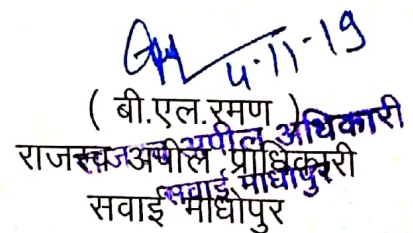 4-11-19
( बी.एल.रमण )
राजस्व अपील प्राधिकारी
सवाई माधोपुर
अपील अधिकारी
सवाई माधोपुर